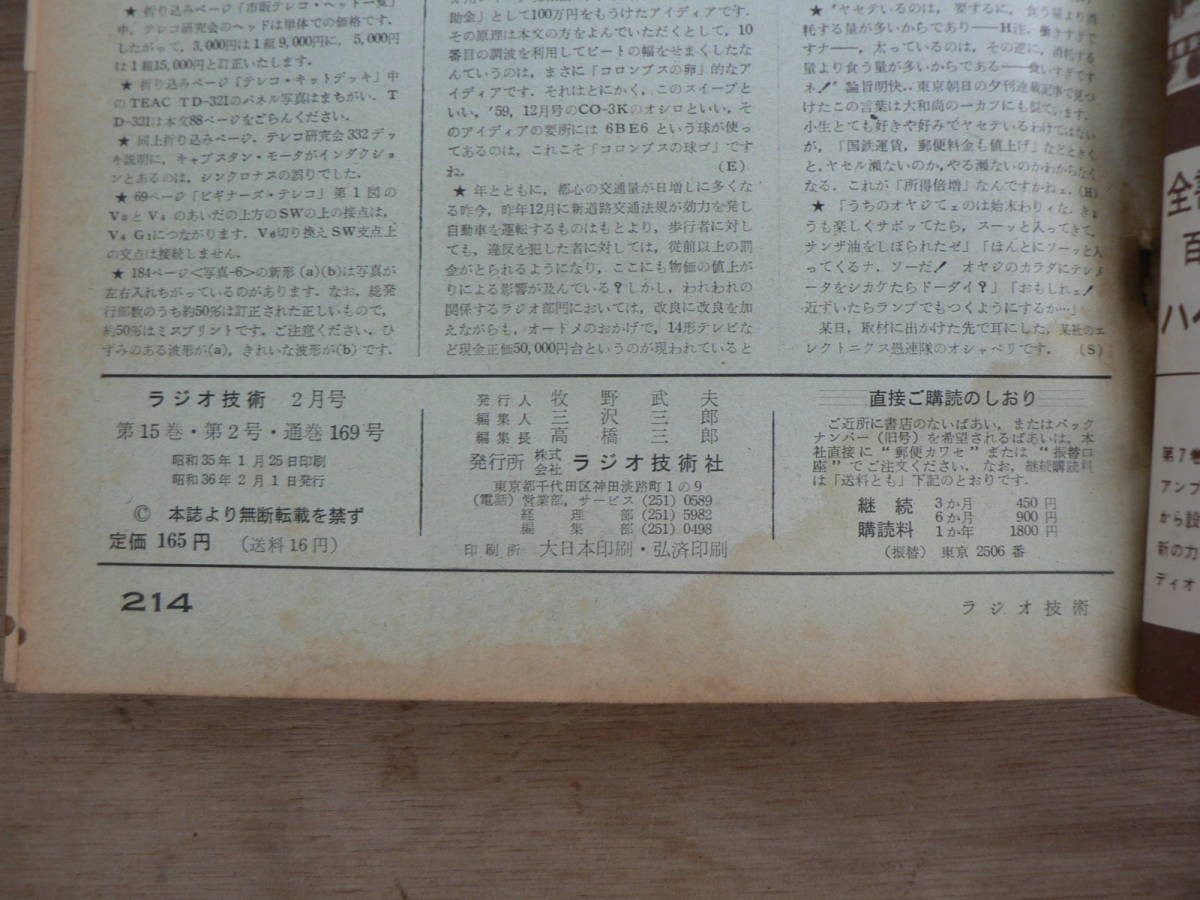 ★ 折り込みページ「市販テレコ・ヘッド一覧」
中，テレコ研究会のヘッドは単体での価格です．
したがって，3,000円は1組9,000円に，5,000円
は1組15,000円と訂正いたします．
★ 折り込みページ「テレコ・キットデッキ」中
のTEAC TD-321のパネル写真はまちがい．T
D-321は本文88ページをごらんください．
★ 同上折り込みページ，テレコ研究会332デッ
キ説明に，キャプスタン・モータがインダクショ
ンとあるのは，シンクロナスの誤りでした．
★ 69ページ「ビギナーズ・テレコ」第1図の
V₃とV₄のあいだの上方のSWの上の接点は，
V₄ G₁につながります．V₆切り換えSW支点上
の交点は接続しません．
★ 184ページ<写真-6>の新形(a)(b)は写真が
左右入れちがっているのがあります．なお，総発
行部数のうち約50%は訂正された正しいもので，
約50%はミスプリントです．ご注意ください．ひ
ずみのある波形が(a)，きれいな波形が(b)です．
助金」として100万円をもうけたアイディアです．
その原理は本文の方をよんでいただくとして，10
番目の調波を利用してビートの幅をせまくしたな
んていうのは，まさに「コロンブスの卵」的なア
イディアです．それはとにかく，このスイープと
いい，'59，12月号のCO-3Kのオシロといい，そ
のアイディアの要所には6BE6という球が使っ
てあるのは，これこそ「コロンブスの球ゴ」です
ね．　(E)
★ 年とともに，都心の交通量が日増しに多くな
る昨今，昨年12月に新道路交通法規が効力を発し
自動車を運転するものはもとより，歩行者に対し
ても，違反を犯した者に対しては，従前以上の罰
金がとられるようになり，ここにも物価の値上が
りによる影響が及んでいる？しかし，われわれの
関係するラジオ部門においては，改良に改良を加
えながらも，オートメのおかげで，14形テレビな
ど現金正価50,000円台というのが現われていると
★"ヤセているのは，要するに，食う量より消
耗する量が多いからであり――H注．働きすぎで
すナ――，太っているのは，その逆に，消耗する
量より食う量が多いからである――食いすぎです
ネ！"論旨明快．東京朝日の夕刊連載記事で見つ
けたこの言葉は大和尚の一カツにも似ています．
小生とても好きや好みでヤセているわけではない
が，「国鉄運賃，郵便料金も値上げ」などときく
と，ヤセル瀬ないのか，やる瀬ないのかわからなく
なる．これが「所得倍増」なんですかねェ．(H)
★「うちのオヤジてェのは始末わりィな．きょ
うも楽しくサボッてたら，スーッと入ってきて，
サンザ油をしぼられたゼ」「ほんとにソーッと入
ってくるナ．ソーだ！　オヤジのカラダにテレメ
ータをシカケたらドーダイ？」「おもしれェ！
近ずいたらランプでもつくようにするか…」
某日，取材に出かけた先で耳にした，某社のエ
レクトニクス愚連隊のオシャベリです．　(S)
ラジオ技術　2月号
第15巻・第2号・通巻169号
昭和35年1月25日印刷
昭和36年2月1日発行
©　本誌より無断転載を禁ず
定価 165円　(送料16円)
発行人　牧野武夫
編集人　三沢三郎
編集長　高橋三郎
発行所 株式会社 ラジオ技術社
東京都千代田区神田淡路町1の9
(電話) 営業部，サービス (251) 0589
経理部 (251) 5982
編集部 (251) 0498
印刷所　大日本印刷・弘済印刷
直接ご購読のしおり
ご近所に書店のないばあい，またはバック
ナンバー(旧号)を希望されるばあいは，本
社直接に"郵便カワセ"または"振替口
座"でご注文ください．なお，継続購読料
は「送料とも」下記のとおりです．
継続　3か月　450円
6か月　900円
購読料　1か年　1800円
(振替) 東京 2506番
214
ラジオ技術
第7巻
アンプ
から設
新の力
ディオ